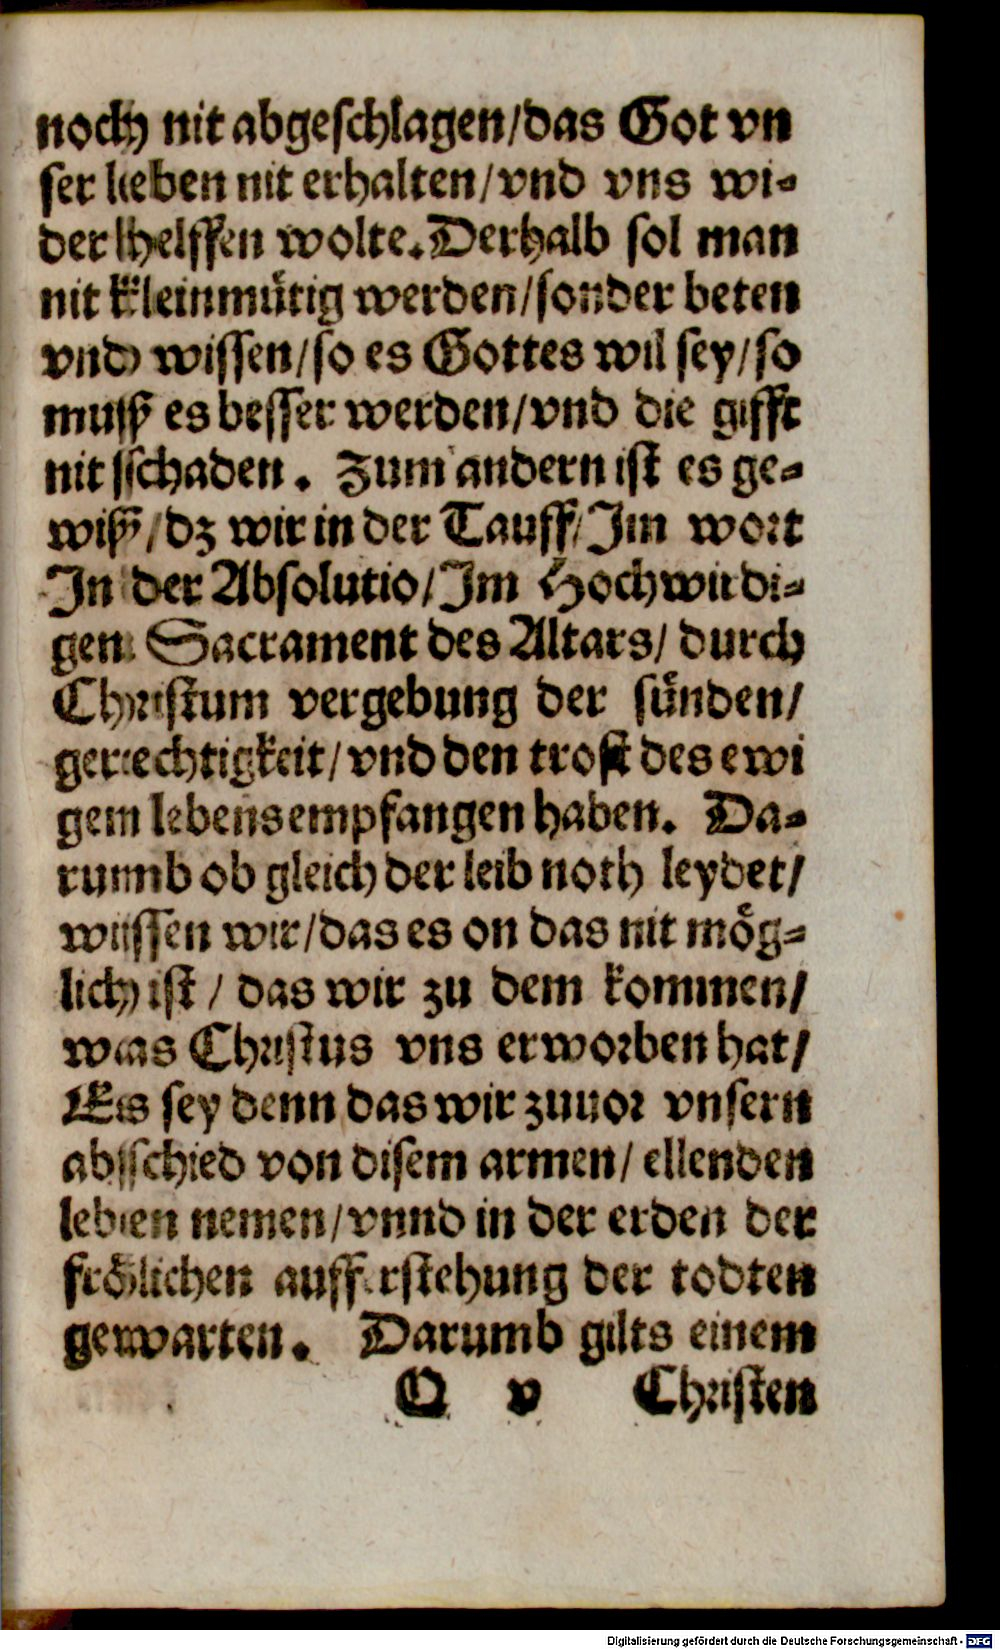 noch nit abgeschlagen/das Got vn
ser leben nit erhalten/vnd vns wi-
der helffen wolte. Derhalb sol man
nit kleinmütig werden/sonder beten
vnd wissen/so es Gottes wil sey/so
muß es besser werden/vnd die gifft
nit schaden. Zum andern ist es ge-
wiß/dz wir in der Tauff/Im wort
In der Absolutio/Im Hochwirdi-
gen Sacrament des Altars/durch
Christum vergebung der sünden/
gerechtigkeit/vnd den trost des ewi
gem lebens empfangen haben. Da-
rumb ob gleich der leib noth leydet/
wissen wir/das es on das nit mög-
lich ist/das wir zu dem kommen/
was Christus vns erworben hat/
Es sey denn das wir zuuor vnsern
abschied von disem armen/ellenden
leben nemen/vnnd in der erden der
frölichen aufferstehung der todten
gewarten. Darumb gilts einem
Q v Christen
Digitalisierung gefördert durch die Deutsche Forschungsgemeinschaft - DFG